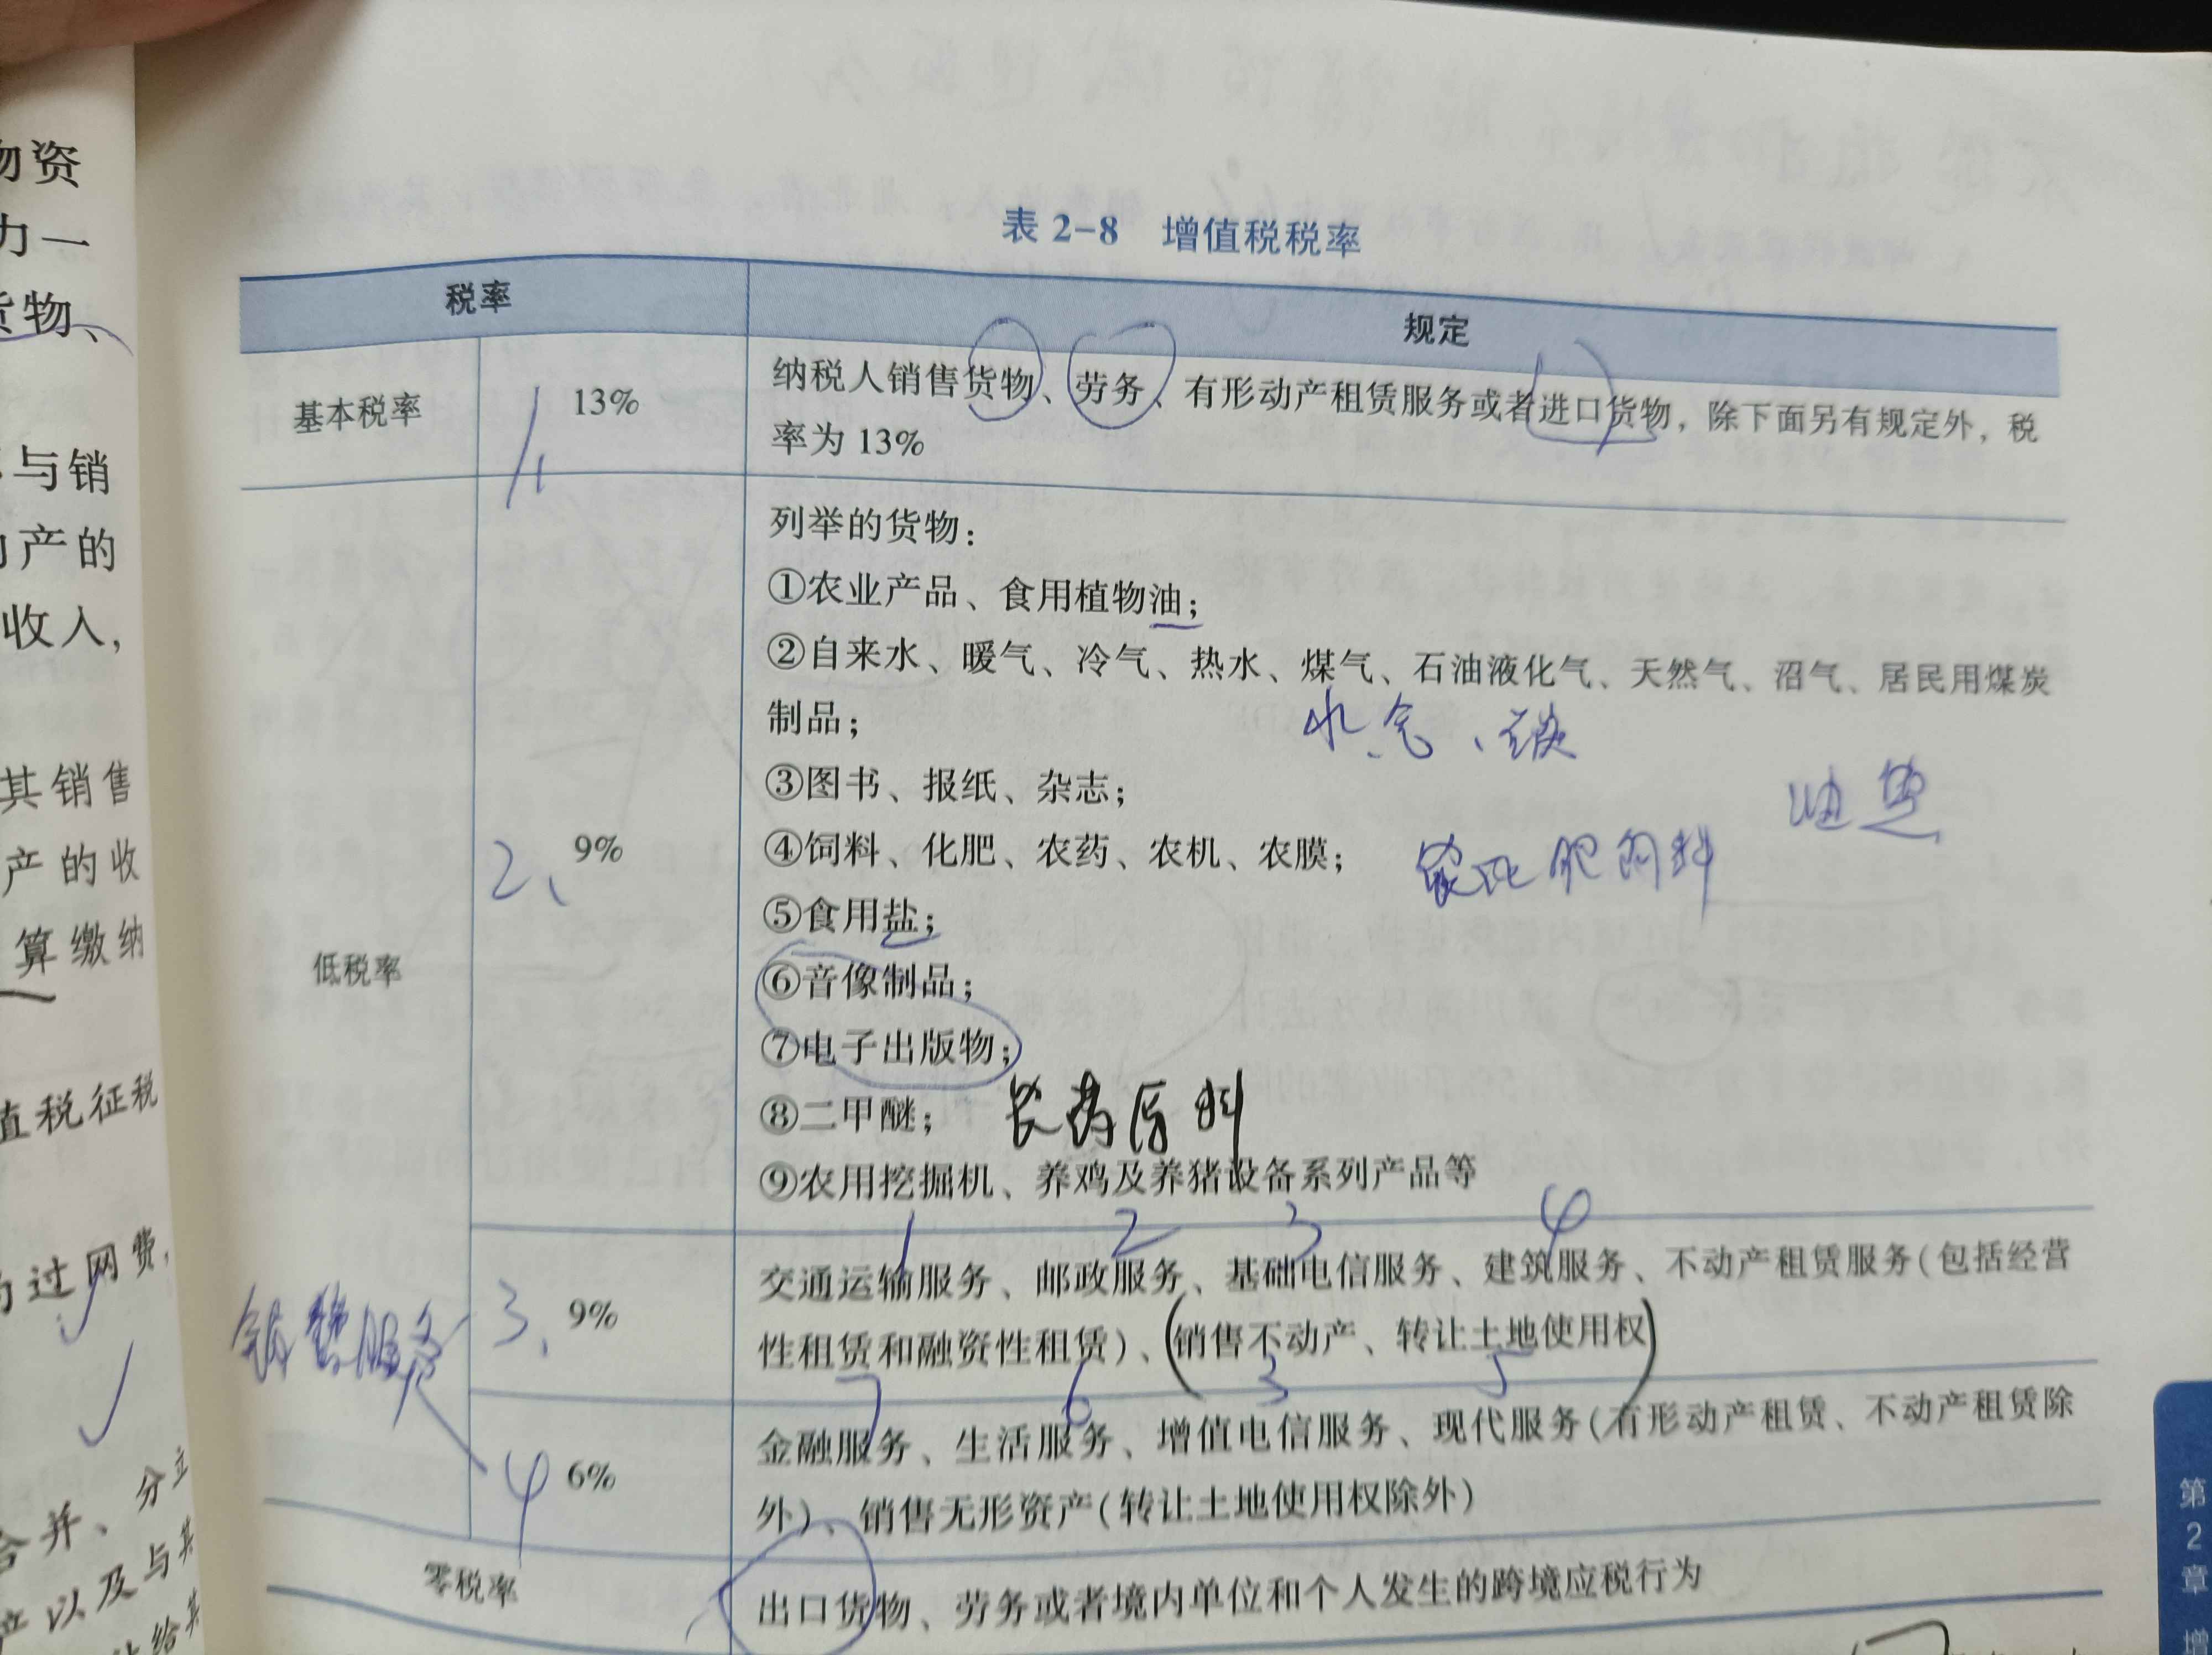 物资
力一
货物、
与销
产的
收入,
其销售
产的收
算缴纳
值税征税
过网费,
合并、分立
产以及与其
给其
表 2-8 增值税税率
税率
规定
基本税率
1、
13%
纳税人销售货物、劳务、有形动产租赁服务或者进口货物，除下面另有规定外，税
率为 13%
低税率
2、
9%
列举的货物：
①农业产品、食用植物油；
②自来水、暖气、冷气、热水、煤气、石油液化气、天然气、沼气、居民用煤炭
制品；
水、气、碳
③图书、报纸、杂志；
油盐
④饲料、化肥、农药、农机、农膜；
农 肥饲料
⑤食用盐；
⑥音像制品；
⑦电子出版物；
⑧二甲醚；
农药原料
⑨农用挖掘机、养鸡及养猪设备系列产品等
1 2 3 4
销售服务
3、
9%
交通运输服务、邮政服务、基础电信服务、建筑服务、不动产租赁服务(包括经营
性租赁和融资性租赁)、(销售不动产、转让土地使用权)
7 6 3 5
4
6%
金融服务、生活服务、增值电信服务、现代服务(有形动产租赁、不动产租赁除
外)、销售无形资产(转让土地使用权除外)
零税率
出口货物、劳务或者境内单位和个人发生的跨境应税行为
第
2
章
增